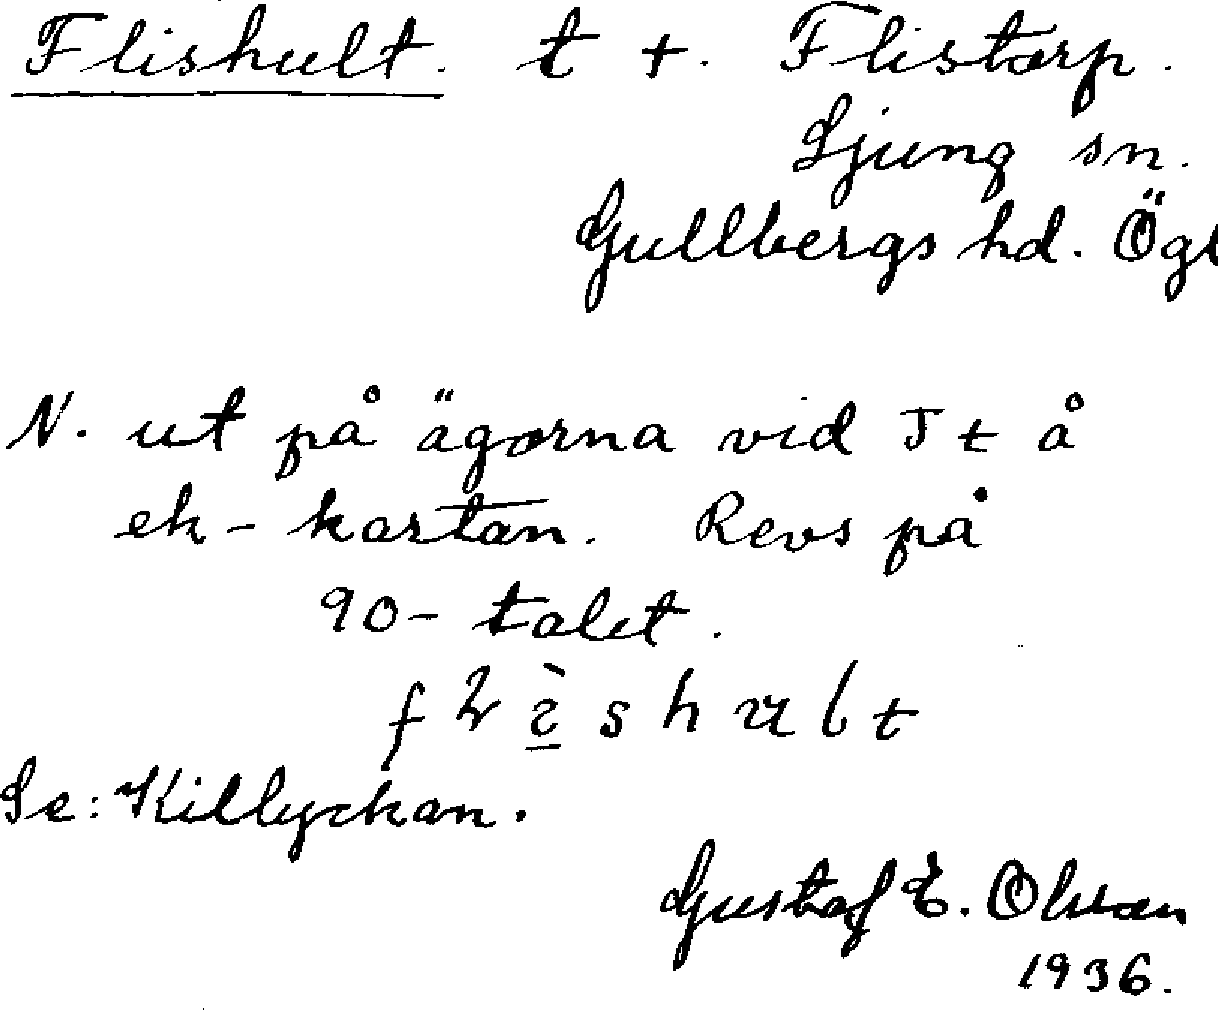 Flishult. t +. Flistorp.
Ljung sn.
Gullbergs hd. Ögl
N. ut på ägorna vid J t å
ek-kartan. Revs på
90-talet.
Se: Killyckan.
Gustaf E. Olsson
1936.